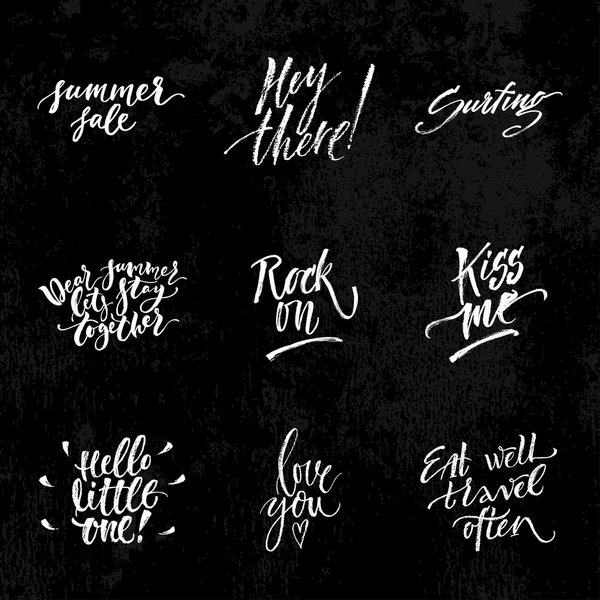 summer
sale
Hey
there!
Surfing
Dear summer
lets stay
together
Rock
on
Kiss
me
Hello
little
one!
love
you
Eat well
travel
often